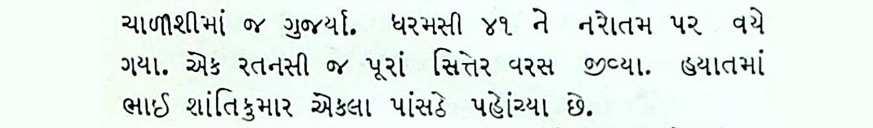 ચાળીશીમાં જ ગુજર્યા. ધરમસી ૪૧ ને નરોતમ ૫૨ વયે
ગયા. એક રતનસી જ પૂરાં સિત્તેર વરસ જીવ્યા. હયાતમાં
ભાઈ શાંતિકુમાર એકલા પાંસઠે પહોંચ્યા છે.